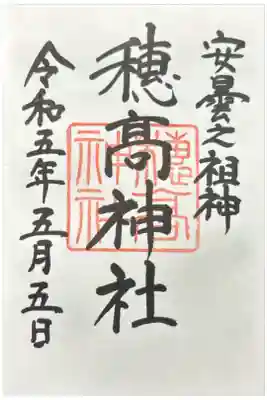 安曇之祖神
穂高神社
穂高神社
令和五年五月五日